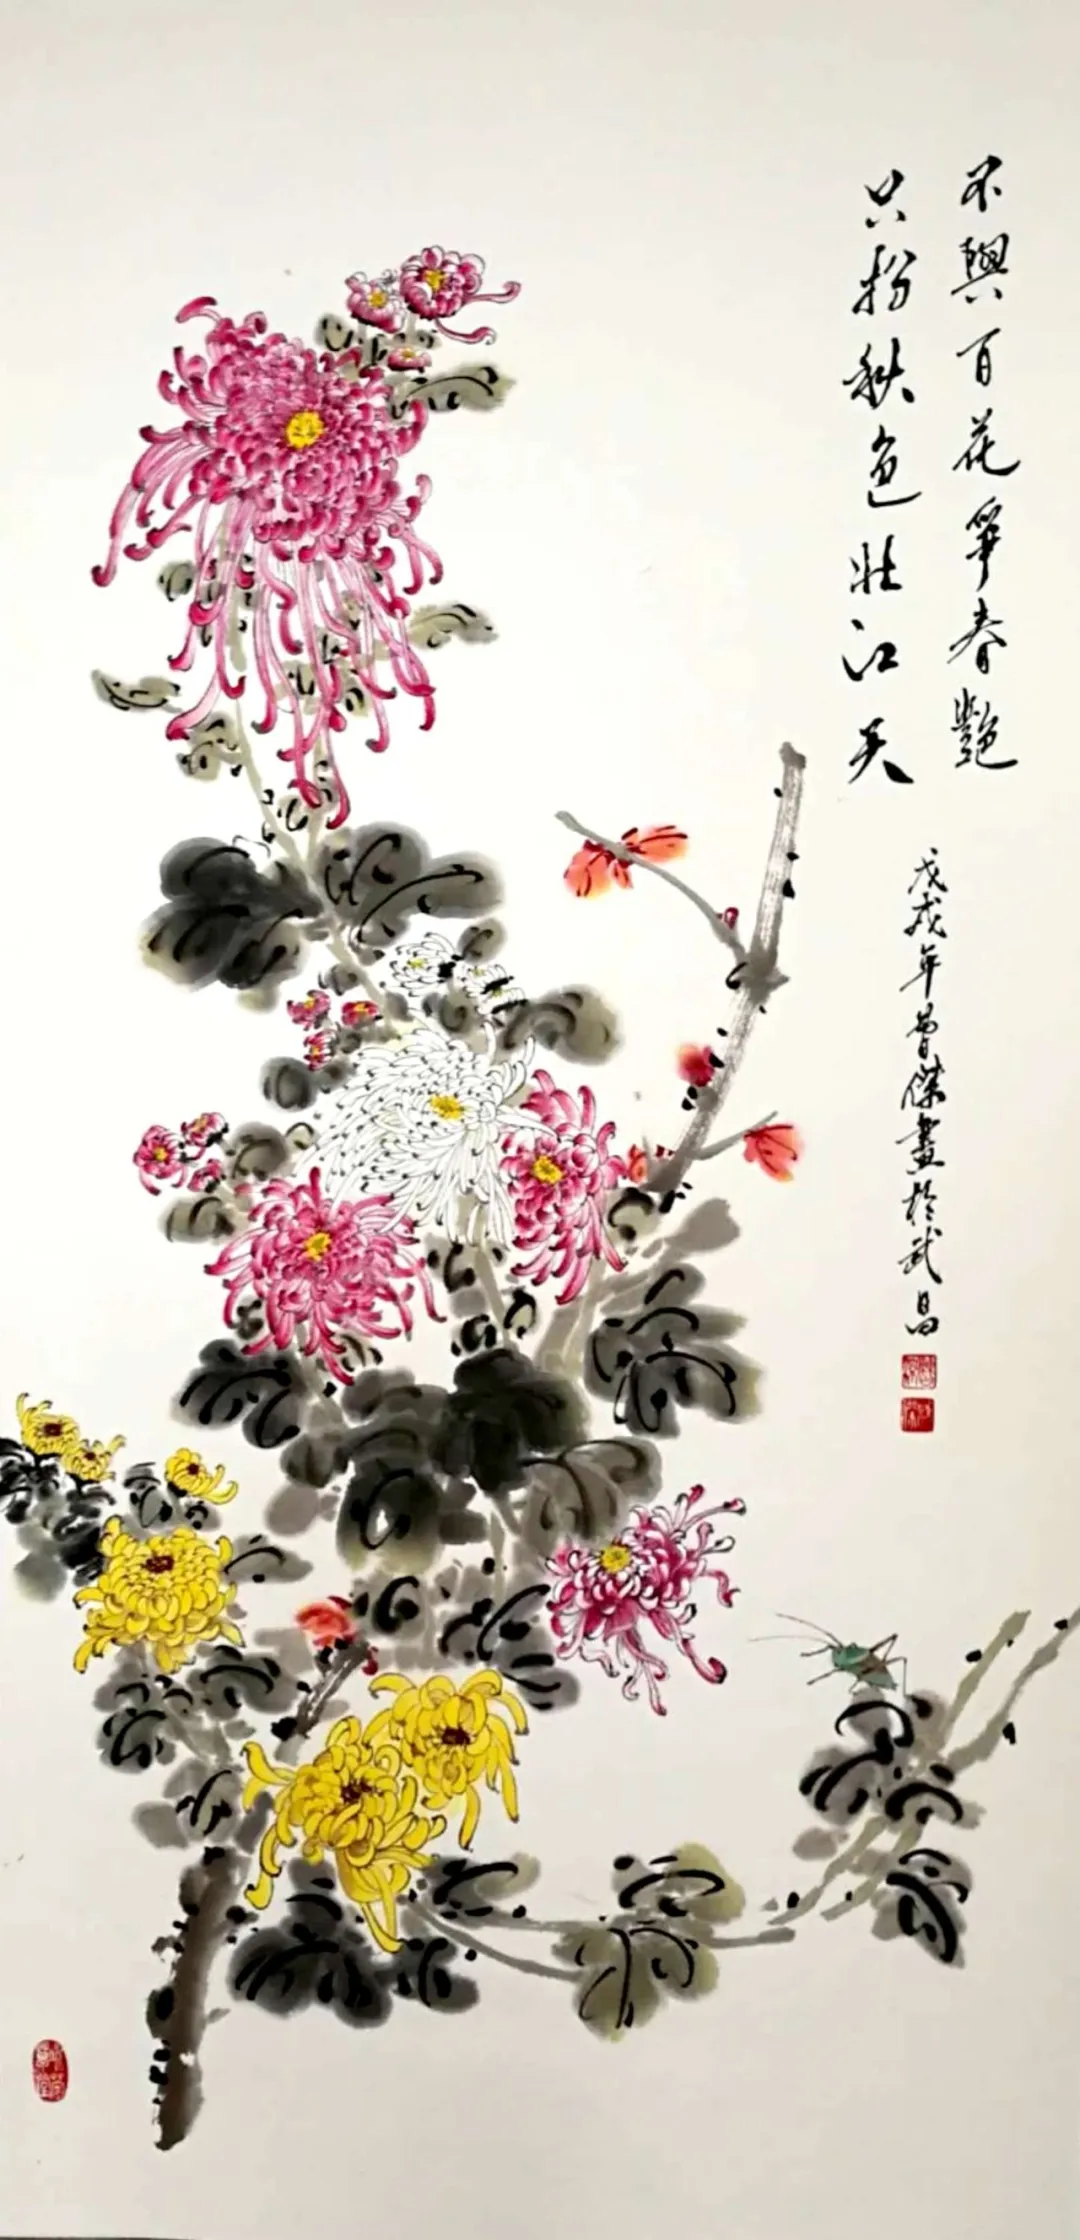 不與百花爭春艷
只扮秋色壯江天
戊戌年曾傑畫於武昌